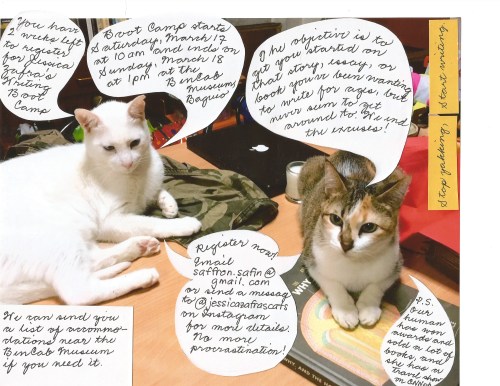 You have
2 weeks left
to register
for Jessica
Zafra's
Writing
Boot
Camp
Boot Camp starts
Saturday, March 17
at 10 am and ends on
Sunday, March 18
at 1pm at the
BenCab
Museum,
Baguio.
The objective is to
get you started on
that story, essay, or
book you've been wanting
to write for ages, but
never seem to get
around to. end
the excuses!
Stop yakking,
Start writing.
Register now!
Email
saffron.safin@
gmail.com
or send a message
to @jessicazafrascats
on Instagram
for more details.
No more
procrastination!
We can send you
a list of accommo-
dations near the
BenCab Museum
if you need it.
P.S.
Our
human
has won
awards and
sold a lot of
books, and
she has a
travel show
on
WHY